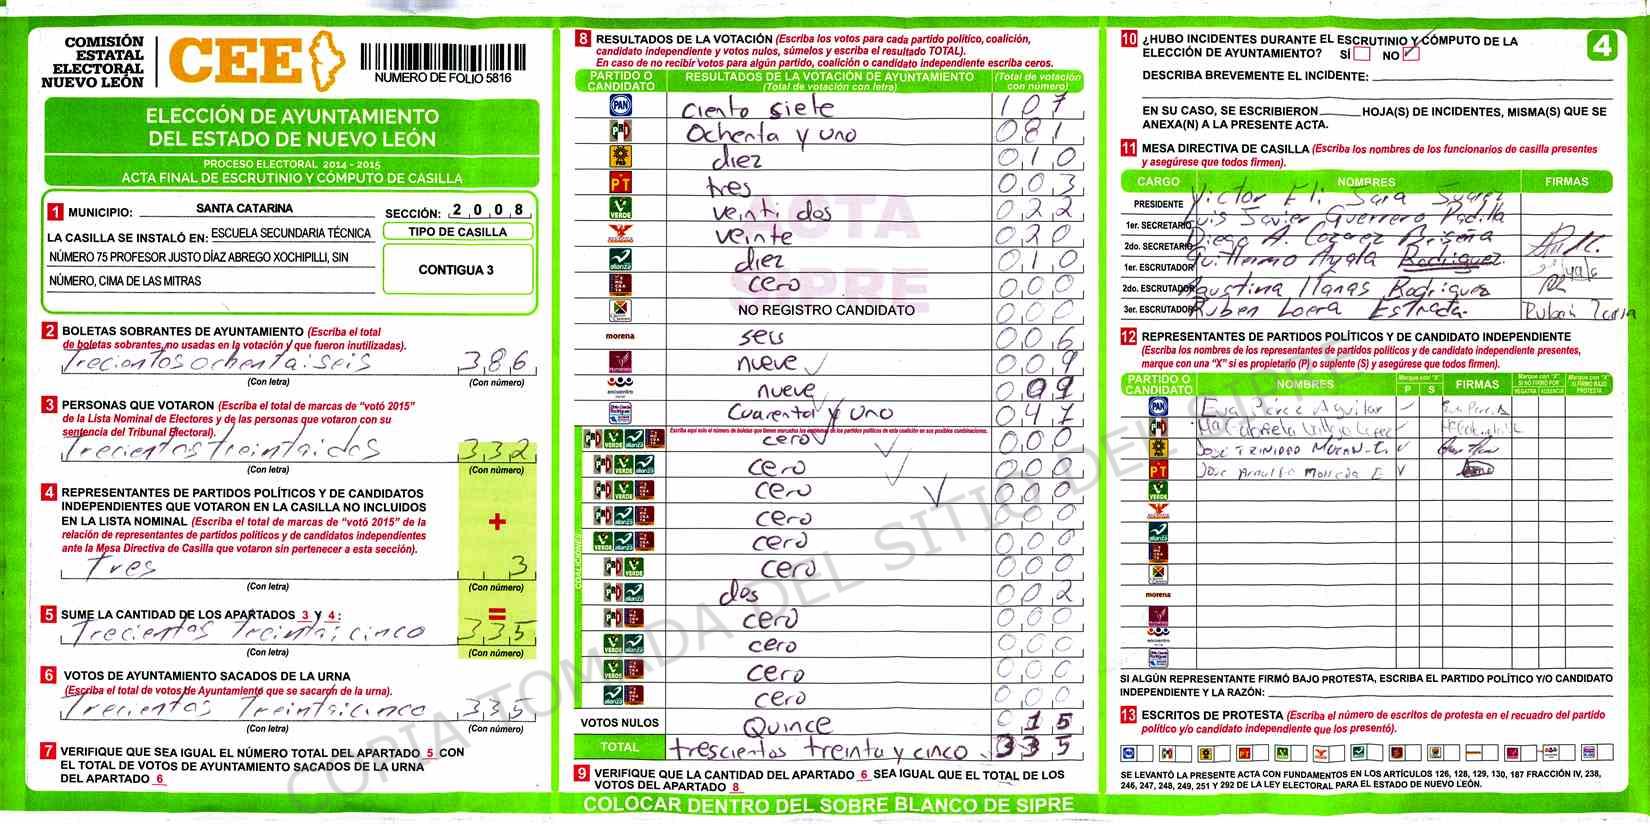 COMISIÓN
ESTATAL
ELECTORAL
NUEVO LEÓN
CEE
NUMERO DE FOLIO 5816
ELECCIÓN DE AYUNTAMIENTO
DEL ESTADO DE NUEVO LEÓN
PROCESO ELECTORAL 2014 - 2015
ACTA FINAL DE ESCRUTINIO Y CÓMPUTO DE CASILLA
1 MUNICIPIO: SANTA CATARINA SECCIÓN: 2008
LA CASILLA SE INSTALÓ EN: ESCUELA SECUNDARIA TÉCNICA
NÚMERO 75 PROFESOR JUSTO DÍAZ ABREGO XOCHIPILLI, SIN
NÚMERO, CIMA DE LAS MITRAS
TIPO DE CASILLA
CONTIGUA 3
2 BOLETAS SOBRANTES DE AYUNTAMIENTO (Escriba el total
de boletas sobrantes no usadas en la votación y que fueron inutilizadas).
Trecientos ochentaiseis 386
(Con letra) (Con número)
3 PERSONAS QUE VOTARON (Escriba el total de marcas de “votó 2015”
de la Lista Nominal de Electores y de las personas que votaron con su
sentencia del Tribunal Electoral).
Trecientos treintaidos 332
(Con letra) (Con número)
4 REPRESENTANTES DE PARTIDOS POLÍTICOS Y DE CANDIDATOS
INDEPENDIENTES QUE VOTARON EN LA CASILLA NO INCLUIDOS
EN LA LISTA NOMINAL (Escriba el total de marcas de “votó 2015” de la
relación de representantes de partidos políticos y de candidatos independientes
ante la Mesa Directiva de Casilla que votaron sin pertenecer a esta sección).
+
Tres 3
(Con letra) (Con número)
=
5 SUME LA CANTIDAD DE LOS APARTADOS 3 Y 4:
Trecientos Treintaicinco 335
(Con letra) (Con número)
6 VOTOS DE AYUNTAMIENTO SACADOS DE LA URNA
(Escriba el total de votos de Ayuntamiento que se sacaron de la urna).
Trecientos Treintaicinco 335
(Con letra) (Con número)
7 VERIFIQUE QUE SEA IGUAL EL NÚMERO TOTAL DEL APARTADO 5 CON
EL TOTAL DE VOTOS DE AYUNTAMIENTO SACADOS DE LA URNA
DEL APARTADO 6
8 RESULTADOS DE LA VOTACIÓN (Escriba los votos para cada partido político, coalición,
candidato independiente y votos nulos, súmelos y escriba el resultado TOTAL).
En caso de no recibir votos para algún partido, coalición o candidato independiente escriba ceros.
PARTIDO O CANDIDATO RESULTADOS DE LA VOTACIÓN DE AYUNTAMIENTO (Total de votación con letra) (Total de votación con número)
PAN ciento siete 107
PRD Ochenta y uno 081
PRD diez 010
PT tres 003
VERDE veinti dos 022
veinte 020
alianza diez 010
cero 000
NO REGISTRO CANDIDATO 000
morena seis 006
nueve 009
encuentro nueve 09
Cuarenta y uno 047
Escriba aquí solo el número de boletas que tienen marcados los emblemas de los partidos políticos de esta coalición en sus posibles combinaciones.
COALICIONES
cero 000
cero 000
cero 000
cero 000
cero 000
cero 000
dos 002
cero 000
cero 000
cero 000
cero 000
VOTOS NULOS Quince 015
TOTAL trescientos treinta y cinco 335
9 VERIFIQUE QUE LA CANTIDAD DEL APARTADO 6 SEA IGUAL QUE EL TOTAL DE LOS
VOTOS DEL APARTADO 8
COLOCAR DENTRO DEL SOBRE BLANCO DE SIPRE
ACTA
SIPRE
COPIA TOMADA DEL SITIO DEL SIPRE
10 ¿HUBO INCIDENTES DURANTE EL ESCRUTINIO Y CÓMPUTO DE LA
ELECCIÓN DE AYUNTAMIENTO? SÍ NO
4
DESCRIBA BREVEMENTE EL INCIDENTE:
EN SU CASO, SE ESCRIBIERON HOJA(S) DE INCIDENTES, MISMA(S) QUE SE
ANEXA(N) A LA PRESENTE ACTA.
11 MESA DIRECTIVA DE CASILLA (Escriba los nombres de los funcionarios de casilla presentes
y asegúrese que todos firmen).
CARGO NOMBRES FIRMAS
PRESIDENTE Victor Eli Suarez
1er. SECRETARIO Luis Javier Guerrero Padilla
2do. SECRETARIO Diego A.
1er. ESCRUTADOR Guillermo Ayala Rodriguez
2do. ESCRUTADOR Agustina Llanas Rodriguez
3er. ESCRUTADOR Ruben Loera Estrada Ruben Loera
12 REPRESENTANTES DE PARTIDOS POLÍTICOS Y DE CANDIDATO INDEPENDIENTE
(Escriba los nombres de los representantes de partidos políticos y de candidato independiente presentes,
marque con una “X” si es propietario (P) o suplente (S) y asegúrese que todos firmen).
PARTIDO O CANDIDATO NOMBRES Marque con “X” P S FIRMAS
PAN Eva Pérez Aguilar
Ma Gabriela
JOSÉ TRINIDAD
PT Jose Arnulfo
VERDE
morena
SI ALGÚN REPRESENTANTE FIRMÓ BAJO PROTESTA, ESCRIBA EL PARTIDO POLÍTICO Y/O CANDIDATO
INDEPENDIENTE Y LA RAZÓN:
13 ESCRITOS DE PROTESTA (Escriba el número de escritos de protesta en el recuadro del partido
político y/o candidato independiente que los presentó).
SE LEVANTÓ LA PRESENTE ACTA CON FUNDAMENTOS EN LOS ARTÍCULOS 126, 128, 129, 130, 187 FRACCIÓN IV, 238,
246, 247, 248, 249, 251 Y 292 DE LA LEY ELECTORAL PARA EL ESTADO DE NUEVO LEÓN.